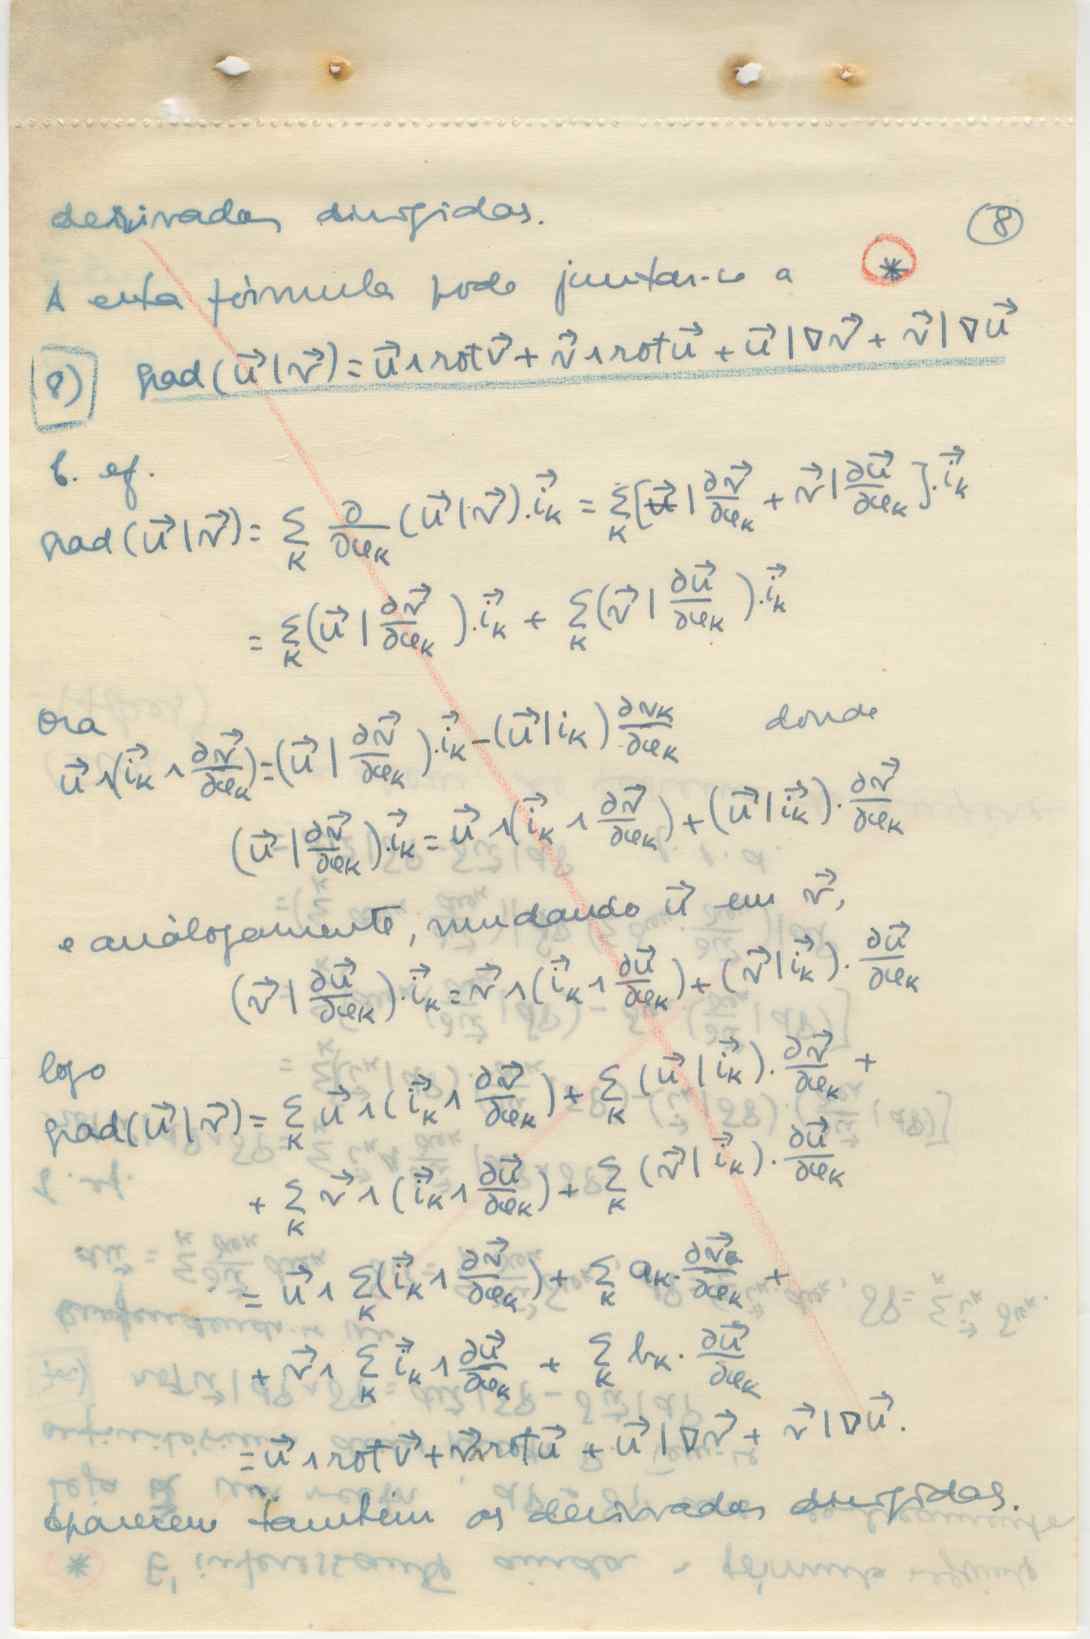 derivadas dirigidas.
(8)
A esta fórmula pode juntar-se a *
8) grad(u⃗|v⃗) = u⃗∧rot v⃗ + v⃗∧rot u⃗ + u⃗|∇v⃗ + v⃗|∇u⃗
C. ef.
grad(u⃗|v⃗) = Σ_K ∂/∂x_K (u⃗|v⃗).i⃗_K = Σ_K [u⃗|∂v⃗/∂x_K + v⃗|∂u⃗/∂x_K].i⃗_K
= Σ_K (u⃗|∂v⃗/∂x_K).i⃗_K + Σ_K (v⃗|∂u⃗/∂x_K).i⃗_K
Ora
u⃗∧(i⃗_K∧∂v⃗/∂x_K) = (u⃗|∂v⃗/∂x_K).i⃗_K − (u⃗|i_K) ∂v_K/∂x_K donde
(u⃗|∂v⃗/∂x_K).i⃗_K = u⃗∧(i⃗_K∧∂v⃗/∂x_K) + (u⃗|i⃗_K).∂v⃗/∂x_K
e análogamente, mudando u⃗ em v⃗,
(v⃗|∂u⃗/∂x_K).i⃗_K = v⃗∧(i⃗_K∧∂u⃗/∂x_K) + (v⃗|i⃗_K).∂u⃗/∂x_K
logo
grad(u⃗|v⃗) = Σ_K u⃗∧(i⃗_K∧∂v⃗/∂x_K) + Σ_K (u⃗|i⃗_K).∂v⃗/∂x_K +
+ Σ_K v⃗∧(i⃗_K∧∂u⃗/∂x_K) + Σ_K (v⃗|i⃗_K).∂u⃗/∂x_K
= u⃗∧Σ_K(i⃗_K∧∂v⃗/∂x_K) + Σ_K a_K.∂v⃗/∂x_K +
+ v⃗∧Σ_K i⃗_K∧∂u⃗/∂x_K + Σ_K b_K.∂u⃗/∂x_K
= u⃗∧rot v⃗ + v⃗∧rot u⃗ + u⃗|∇v⃗ + v⃗|∇u⃗.
Aparecem também as derivadas dirigidas.